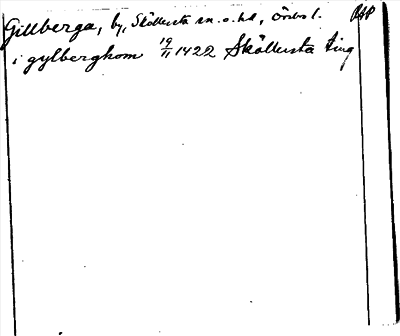 Gillberga, by, Sköllersta sn. o. hd, Örebro l. RAP
i gylberghom 19/11 1422 Sköllersta ting